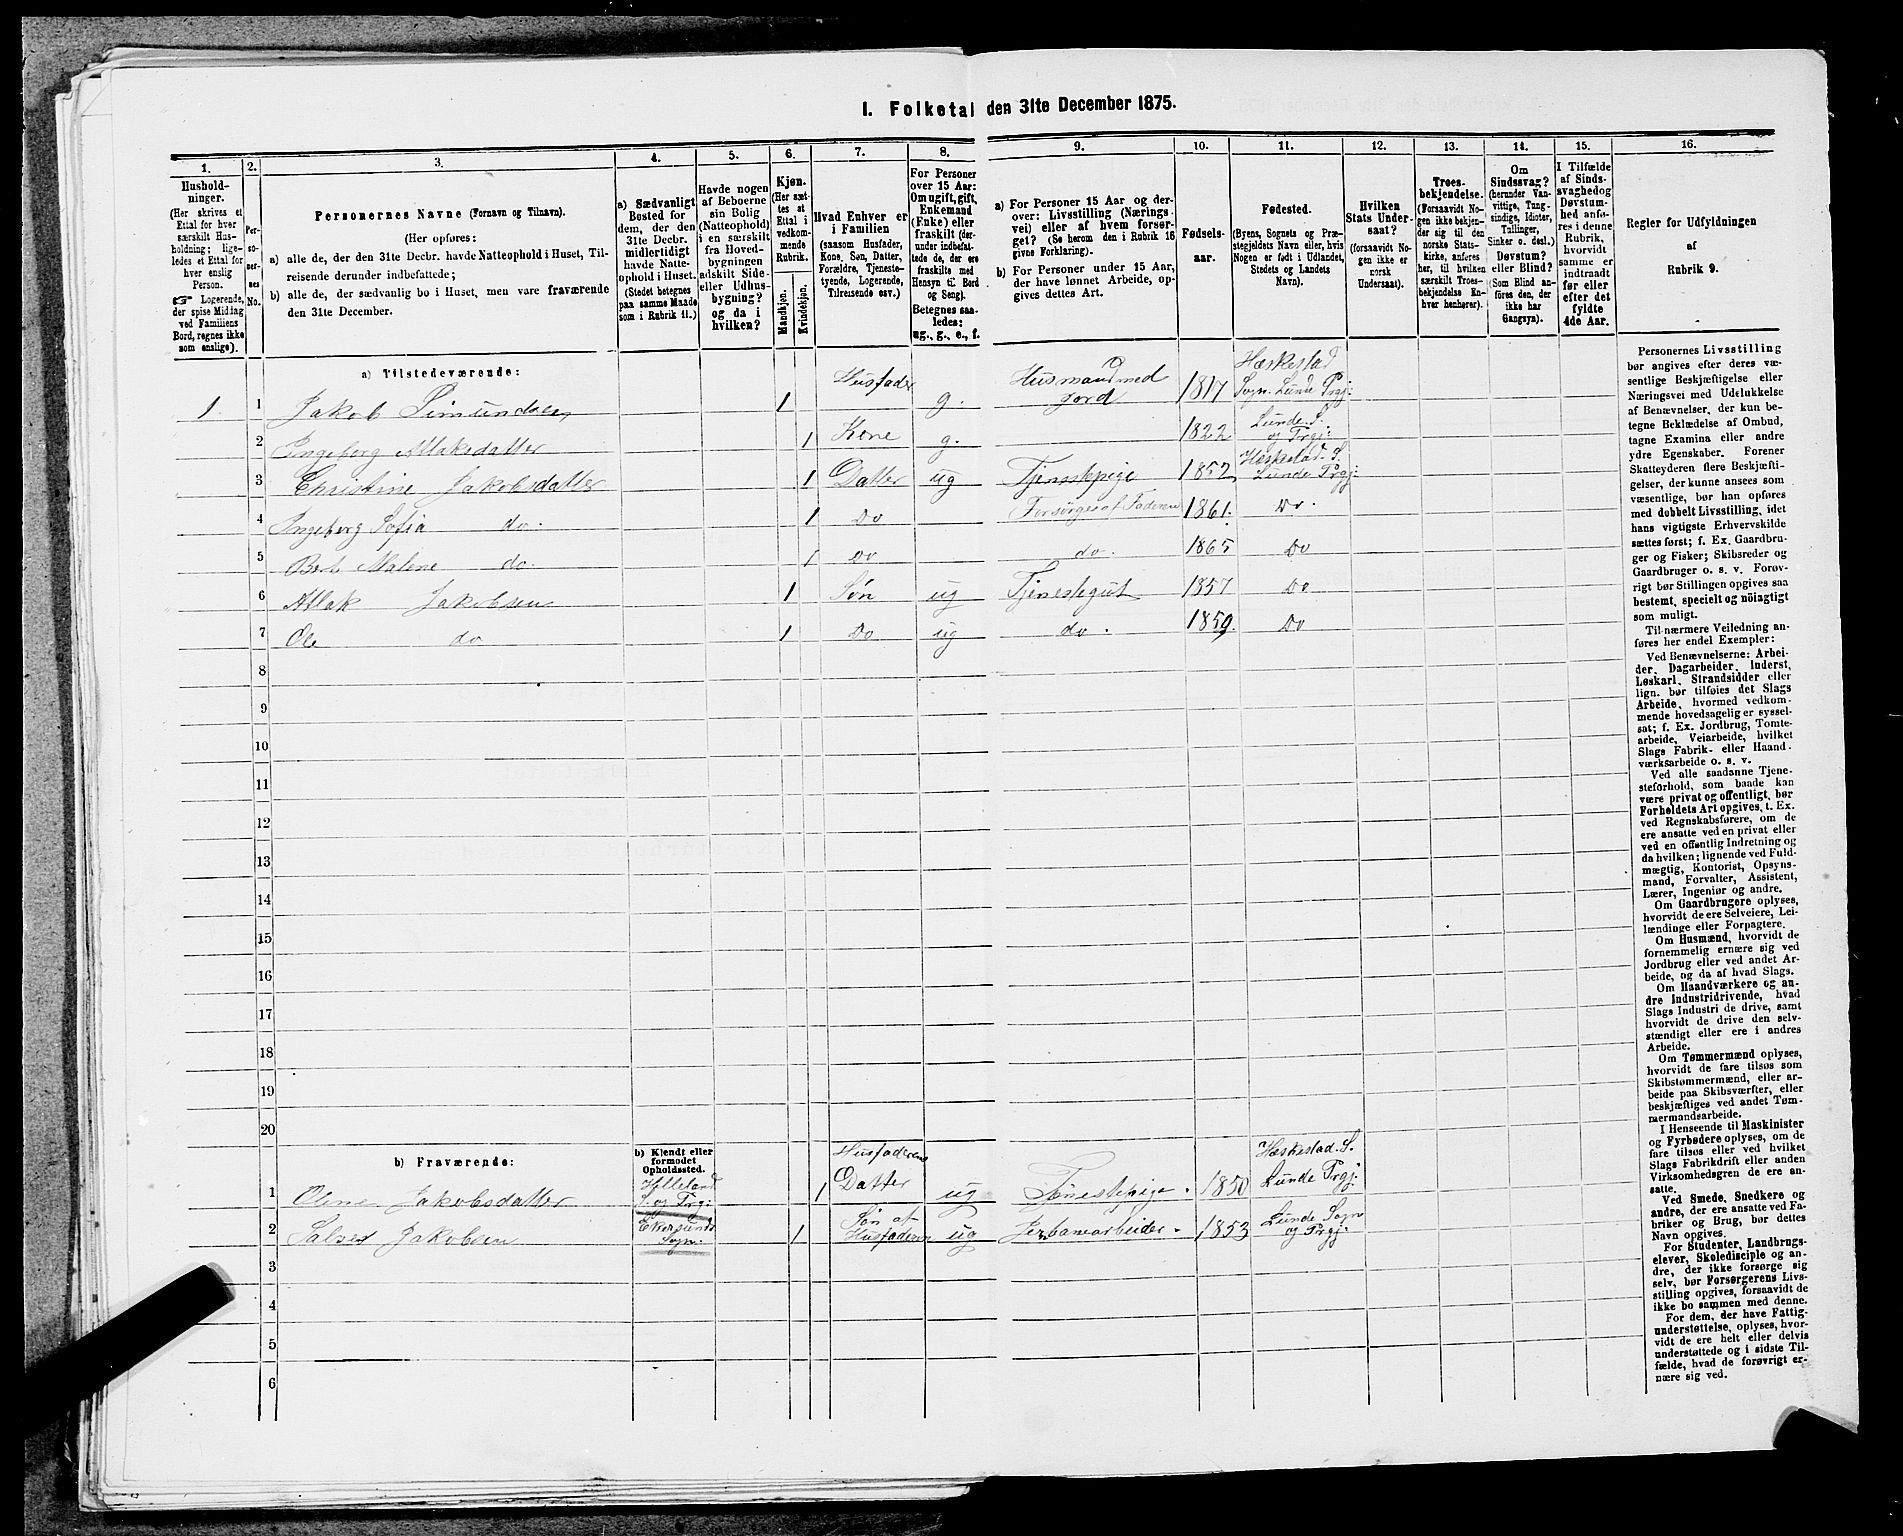 I. Folketal den 31te December 1875.
1. 2. 3. 4. 5. 6. 7. 8. 9. 10. 11. 12. 13. 14. 15. 16.
Hushold-
ninger.
(Her skrives et
Ettal for hver
særskilt Hus-
holdning; lige-
ledes et Ettal for
hver enslig
Person.
☞ Logerende,
der spise Middag
ved Familiens
Bord, regnes ikke
som enslige).
Per-
so-
ner-
nes
No.
Personernes Navne (Fornavn og Tilnavn).
(Her opføres:
a) alle de, der den 31te Decbr. havde Natteophold i Huset, Til-
reisende derunder indbefattede;
b) alle de, der sædvanlig bo i Huset, men vare fraværende
den 31te December.
a) Sædvanligt
Bosted for
dem, der den
31te Decbr.
midlertidigt
havde Natte-
ophold i Huset.
(Stedet betegnes
paa samme Maade
som i Rubrik 11.)
Havde nogen
af Beboerne
sin Bolig
(Natteophold)
i en særskilt
fra Hoved-
bygningen
adskilt Side-
eller Udhus-
bygning?
og da i
hvilken?
Kjøn.
(Her sæt-
tes et
Ettal i
vedkom-
mende
Rubrik.
Mandkjøn.
Kvindekjøn.
Hvad Enhver er
i Familien
(saasom Husfader,
Kone, Søn, Datter,
Forældre, Tjeneste-
tyende, Logerende,
Tilreisende osv.)
For Personer
over 15 Aar:
Om ugift, gift,
Enkemand
(Enke) eller
fraskilt (der-
under indbefat-
tede de, der ere
fraskilte med
Hensyn til Bord
og Seng).
Betegnes saa-
ledes:
ug., g., e., f.
a) For Personer 15 Aar og der-
over: Livsstilling (Nærings-
vei) eller af hvem forsør-
get? (Se herom den i Rubrik 16
givne Forklaring).
b) For Personer under 15 Aar,
der have lønnet Arbeide, op-
gives dettes Art.
Fødsels-
aar.
Fødested.
(Byens, Sognets og Præ-
stegjeldets Navn eller, hvis
Nogen er født i Udlandet,
Stedets og Landets
Navn).
Hvilken
Stats Under-
saat?
(forsaavidt No-
gen ikke er
norsk
Undersaat).
Troes-
bekjendelse.
(Forsaavidt No-
gen ikke bekjen-
der sig til den
norske Stats-
kirke, anføres
her, til hvilken
særskilt Troes-
bekjendelse En-
hver henhører).
Om
Sindssvag?
(herunder Van-
vittige, Tung-
sindige, Idioter,
Tullinger,
Sinker o. desl.)
Døvstum?
eller Blind?
(Som Blind an-
føres den, der
ikke har
Gangsyn).
I Tilfælde
af Sinds-
svaghed og
Døvstum-
hed anfø-
res i denne
Rubrik,
hvorvidt
samme er
indtraadt
før eller
efter det
fyldte
4de Aar.
Regler for Udfyldningen
af
Rubrik 9.
a) Tilstedeværende:
1 1 Jakob Simundsen 1 Husfader g. Husmand med Jord 1817 Hæskestad Sogn. Lunde Prgj:
2 Ingeborg Atlaksdatter 1 Kone g. 1822 Lunde S. og Prgj:
3 Christine Jakobsdatter 1 Datter ug Tjenestepige 1852 Hæskestad. S. Lunde Prgj:
4 Ingeborg Sofia do. 1 Do Forsørges af Faderen 1861. Do.
5 Bert Malene do. 1 Do do. 1865 Do
6 Atlak Jakobsen 1 Søn ug Tjenestegut 1857 Do
7 Ole do 1 Do ug do. 1859. Do
8
9
10
11
12
13
14
15
16
17
18
19
20
b) Fraværende:
b) Kjendt eller
formodet
Opholdssted.
1 Oline Jakobsdatter Helleland S. og Prgj: 1 Husfaderens Datter ug Tjenestepige. 1850 Hæskestad. S. Lunde Prgj:
2 Salve Jakobsen Ekersunds Sogn. 1 Søn af Husfaderen ug Jernbanearbeider. 1853 Lunde Sogn og Prgj:
3
4
5
6
Personernes Livsstilling
bør angives efter deres væ-
sentlige Beskjæftigelse eller
Næringsvei med Udelukkelse
af Benævnelser, der kun be-
tegne Beklædelse af Ombud,
tagne Examina eller andre
ydre Egenskaber. Forener
Skatteyderen flere Beskjæfti-
gelser, der kunne ansees som
væsentlige, bør han opføres
med dobbelt Livsstilling, idet
hans vigtigste Erhvervskilde
sættes først; f. Ex. Gaardbru-
ger og Fisker; Skibsreder og
Gaardbruger o. s. v. Forøv-
rigt bør Stillingen opgives saa
bestemt, specielt og nøiagtigt
som muligt.
Til nærmere Veiledning an-
føres her endel Exempler:
Ved Benævnelserne: Arbei-
der, Dagarbeider, Inderst,
Løskarl, Strandsidder eller
lign. bør tilføies det Slags
Arbeide, hvormed vedkom-
mende hovedsagelig er syssel-
sat; f. Ex. Jordbrug, Tomte-
arbeide, Veiarbeide, hvilket
Slags Fabrik- eller Haand-
værksarbeide o. s. v.
Ved alle saadanne Tjene-
steforhold, som baade kan
være privat og offentligt, bør
Forholdets Art opgives, t. Ex.
ved Regnskabsførere, om de
ere ansatte ved en privat eller
ved en offentlig Indretning og
da hvilken; lignende ved Fuld-
mægtig, Kontorist, Opsyns-
mand, Forvalter, Assistent,
Lærer, Ingeniør og andre.
Om Gaardbrugere oplyses,
hvorvidt de ere Selveiere, Lei-
lændinge eller Forpagtere.
Om Husmænd, hvorvidt de
fornemmelig ernære sig ved
Jordbrug eller ved andet Ar-
beide, og da af hvad Slags.
Om Haandværkere og an-
dre Industridrivende, hvad
Slags Industri de drive, samt
hvorvidt de drive den selv-
stændigt eller ere i andres
Arbeide.
Om Tømmermænd oplyses,
hvorvidt de fare tilsøs som
Skibstømmermænd, eller ar-
beide paa Skibsværfter, eller
beskjæftiges ved andet Tøm-
mermandsarbeide.
I Henseende til Maskinister
og Fyrbødere oplyses, om de
fare tilsøs eller ved hvilket
Slags Fabrikdrift eller anden
Virksomhedsgren de ere an-
satte.
Ved Smede, Snedkere og
andre, der ere ansatte ved Fa-
briker og Brug, bør dettes
Navn opgives.
For Studenter, Landbrugs-
elever, Skoledisciple og an-
dre, der ikke forsørge sig
selv, bør Forsørgerens Livs-
stilling opgives, forsaavidt de
ikke bo sammen med denne.
For dem, der have Fattig-
understøttelse, oplyses, hvor-
vidt de ere helt eller delvis
understøttede og i sidste Til-
fælde, hvad de forøvrigt er-
nære sig ved.